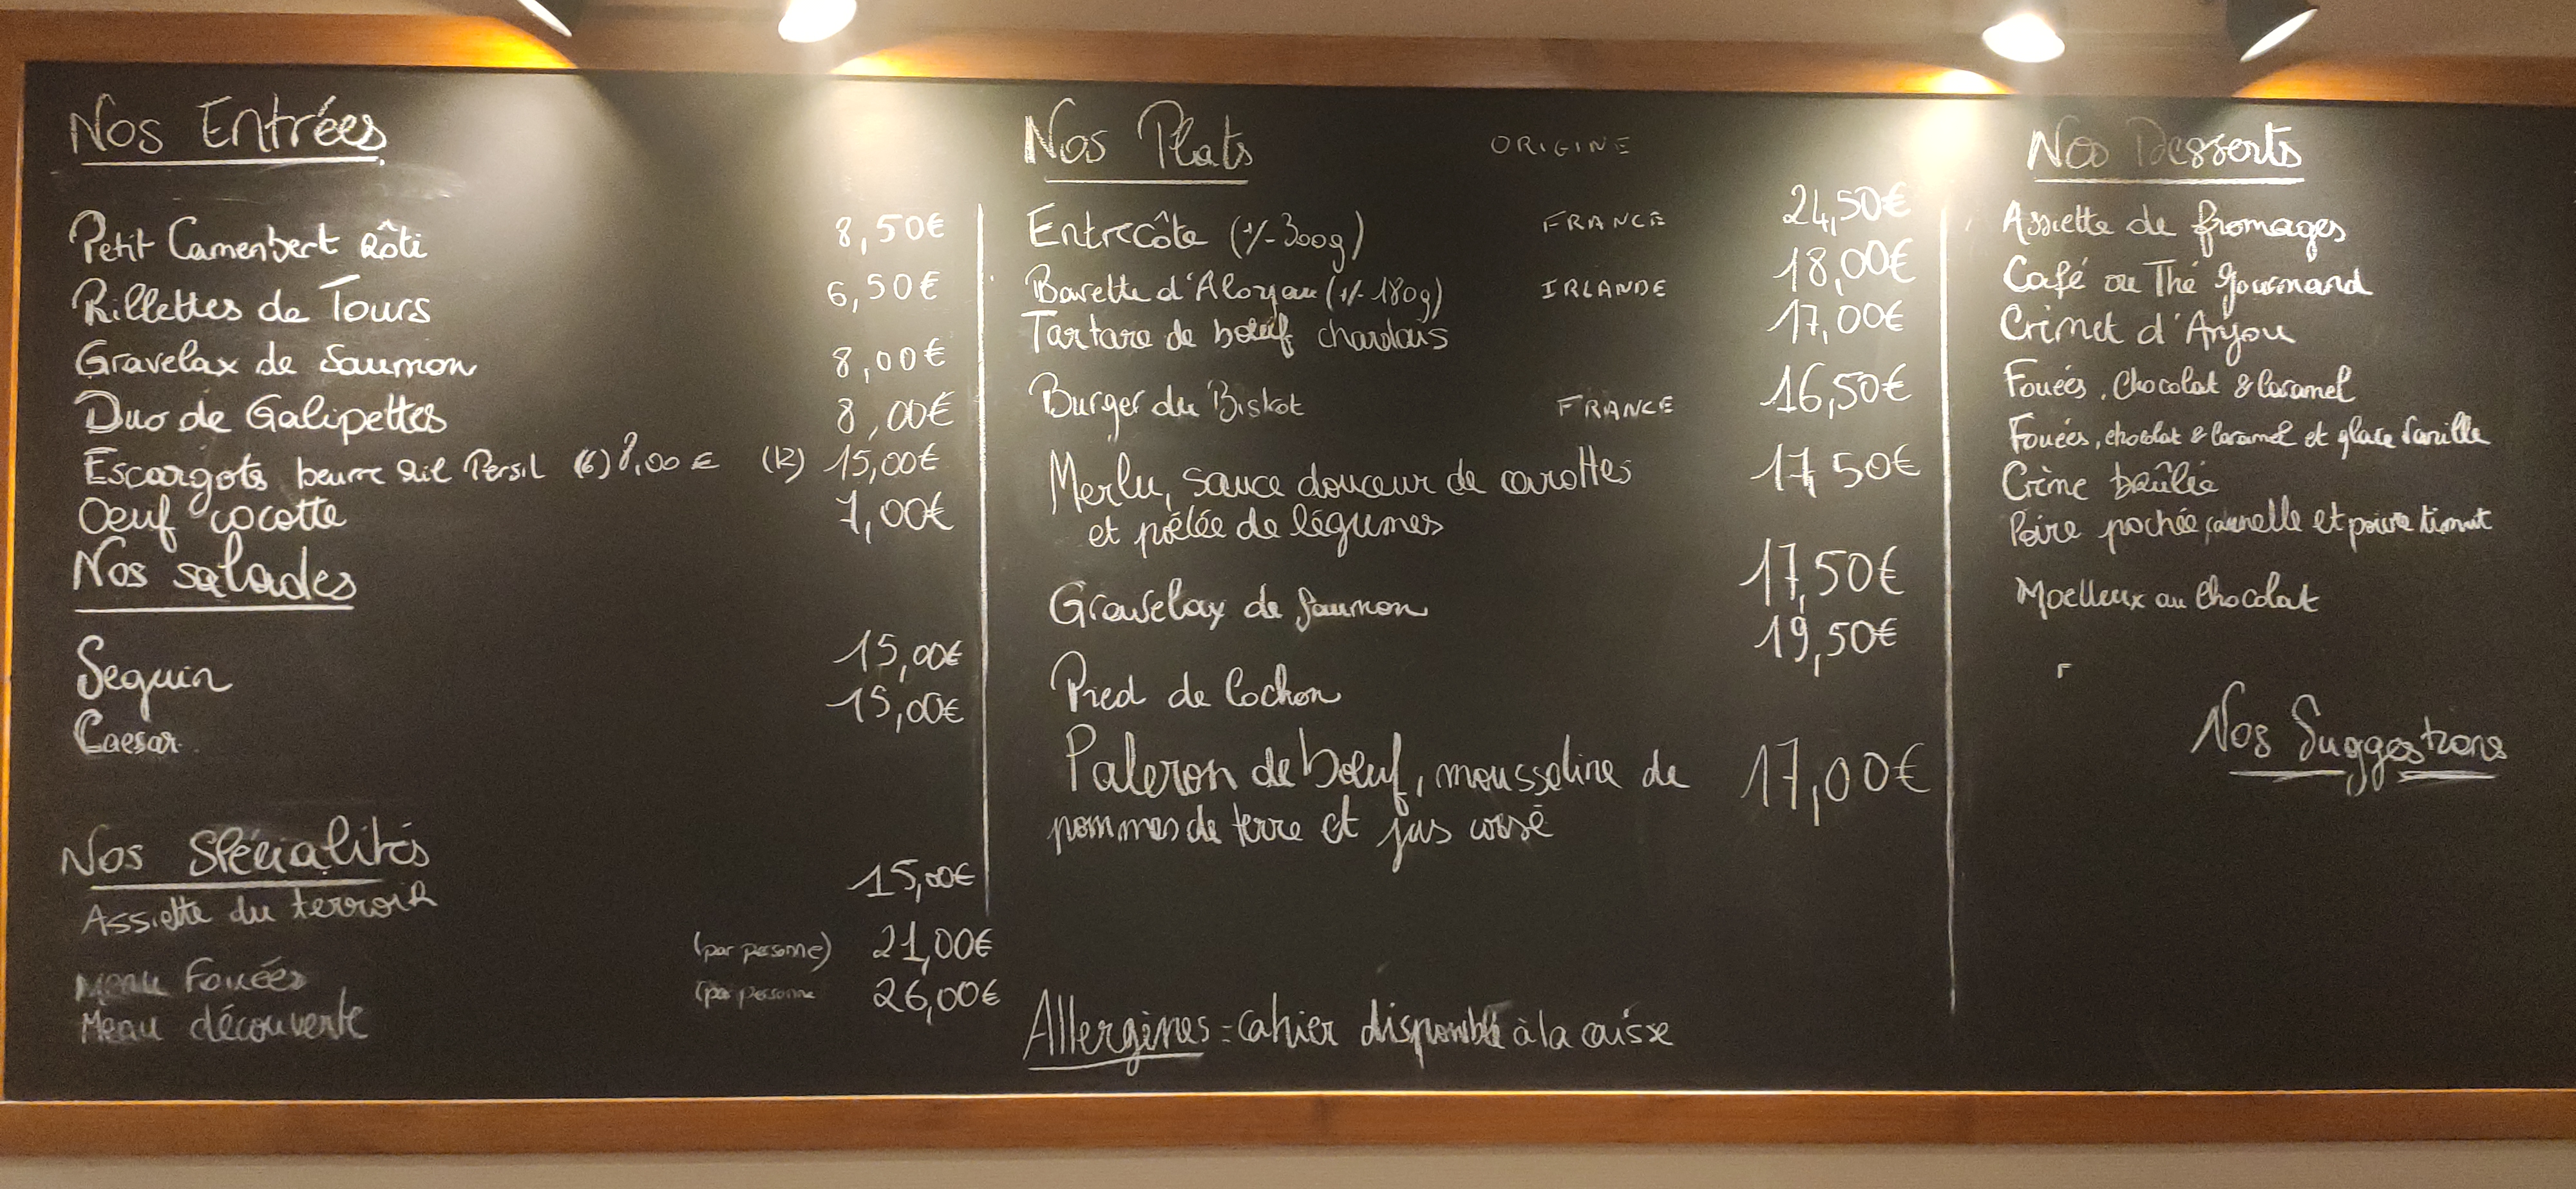 Nos Entrées
Petit Camenbert Rôti 8,50€
Rillettes de Tours 6,50€
Gravelax de Saumon 8,00€
Duo de Galipettes 8,00€
Escargots beurre ail Persil (6) 8,00€ (12) 15,00€
Oeuf cocotte 7,00€
Nos salades
Seguin 15,00€
Caesar 15,00€
Nos Spécialités
Assiette du terroir 15,00€
Menu Fouées (par personne) 21,00€
Menu découverte (par personne 26,00€
Nos Plats ORIGINE
Entrecôte (+/- 300g) FRANCE 24,50€
Bavette d'Aloyau (+/- 180g) IRLANDE 18,00€
Tartare de bœuf charolais 17,00€
Burger du Biskot FRANCE 16,50€
Merlu, sauce douceur de carottes 17,50€
et poêlée de légumes
Gravelax de Saumon 17,50€
Pied de Cochon 19,50€
Paleron de bœuf, mousseline de 17,00€
pommes de terre et jus corsé
Allergènes = cahier disponible à la caisse
Nos Desserts
Assiette de fromages
Café ou Thé gourmand
Crémet d'Anjou
Fouées, Chocolat & Caramel
Fouées, chocolat & Caramel et glace Vanille
Crème brûlée
Poire pochée, cannelle et poivre timut
Moelleux au Chocolat
Nos Suggestions